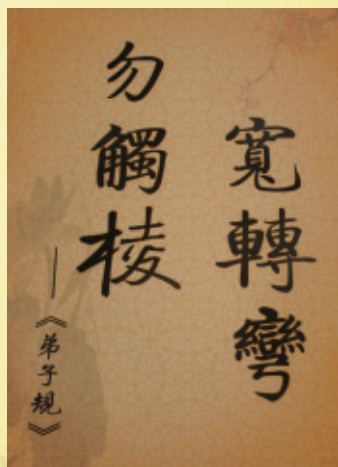 寬轉彎
勿觸棱
—《弟子規》